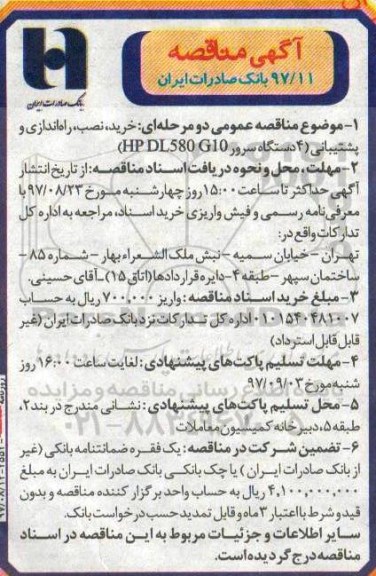 آگهی مناقصه
۹۷/۱۱ بانک صادرات ایران
بانک صادرات ایران
۱- موضوع مناقصه عمومی دو مرحله‌ای: خرید، نصب، راه‌اندازی و
پشتیبانی (۴ دستگاه سرور HP DL580 G10)
۲- مهلت، محل و نحوه دریافت اسناد مناقصه: از تاریخ انتشار
آگهی حداکثر تا ساعت ۱۵:۰۰ روز چهارشنبه مورخ ۹۷/۰۸/۲۳ با
معرفی‌نامه رسمی و فیش واریزی خرید اسناد، مراجعه به اداره کل
تدارکات واقع در:
تهران - خیابان سمیه - نبش ملک الشعراء بهار - شماره ۸۵ -
ساختمان سپهر - طبقه ۴ - دایره قراردادها (اتاق ۱۵) - آقای حسینی.
۳- مبلغ خرید اسناد مناقصه: واریز ۷۰۰,۰۰۰ ریال به حساب
۰۱۰۱۵۴۰۴۸۱۰۰۷ اداره کل تدارکات نزد بانک صادرات ایران (غیر
قابل قابل استرداد)
۴- مهلت تسلیم پاکت‌های پیشنهادی: لغایت ساعت ۱۶:۰۰ روز
شنبه مورخ ۹۷/۰۹/۰۳
۵- محل تسلیم پاکت‌های پیشنهادی: نشانی مندرج در بند ۲،
طبقه ۵، دبیرخانه کمیسیون معاملات
۶- تضمین شرکت در مناقصه: یک فقره ضمانتنامه بانکی (غیر
از بانک صادرات ایران) یا چک بانکی بانک صادرات ایران به مبلغ
۴,۱۰۰,۰۰۰,۰۰۰ ریال به حساب واحد برگزار کننده مناقصه و بدون
قید و شرط با اعتبار ۳ ماه و قابل تمدید حسب درخواست بانک.
سایر اطلاعات و جزئیات مربوط به این مناقصه در اسناد
مناقصه درج گردیده است.